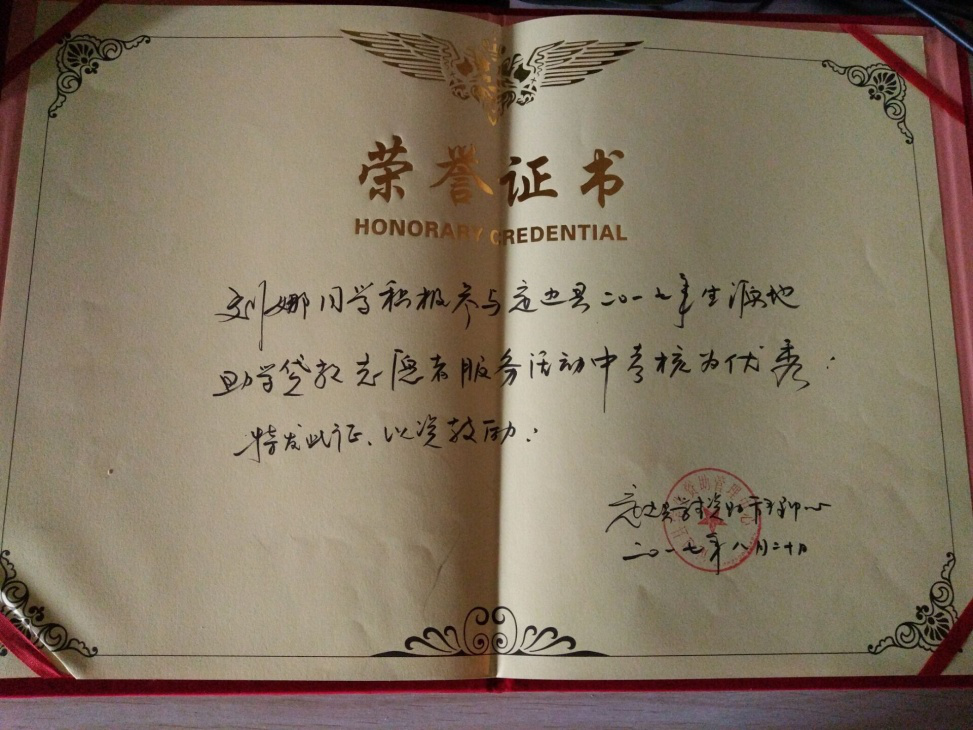 荣誉证书
HONORARY CREDENTIAL
刘娜同学积极参与定边县二〇一七年生源地
助学贷款志愿者服务活动中考核为优秀.
特发此证、以资鼓励.
定边县学生资助管理中心
二〇一七年八月二十日
资助管理中心